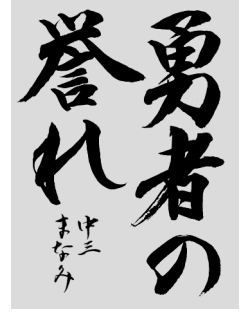 勇者の
誉れ
中三
まなみ